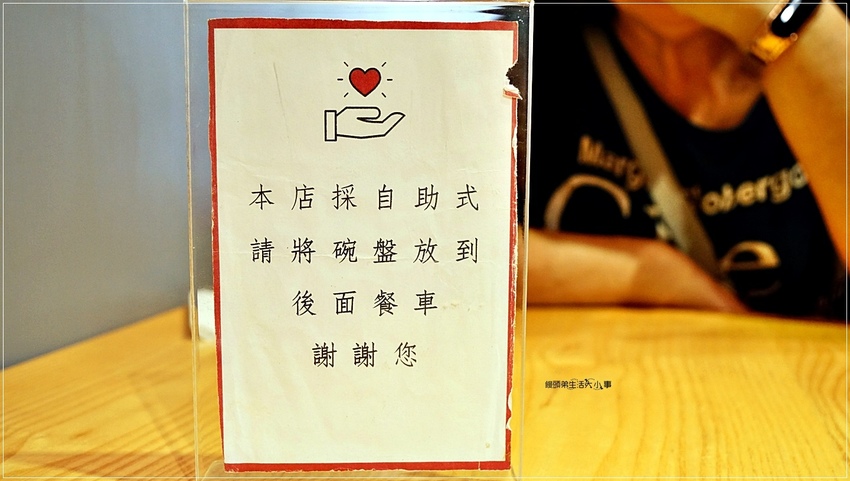 本店採自助式
請將碗盤放到
後面餐車
謝謝您
饅頭弟生活大小事